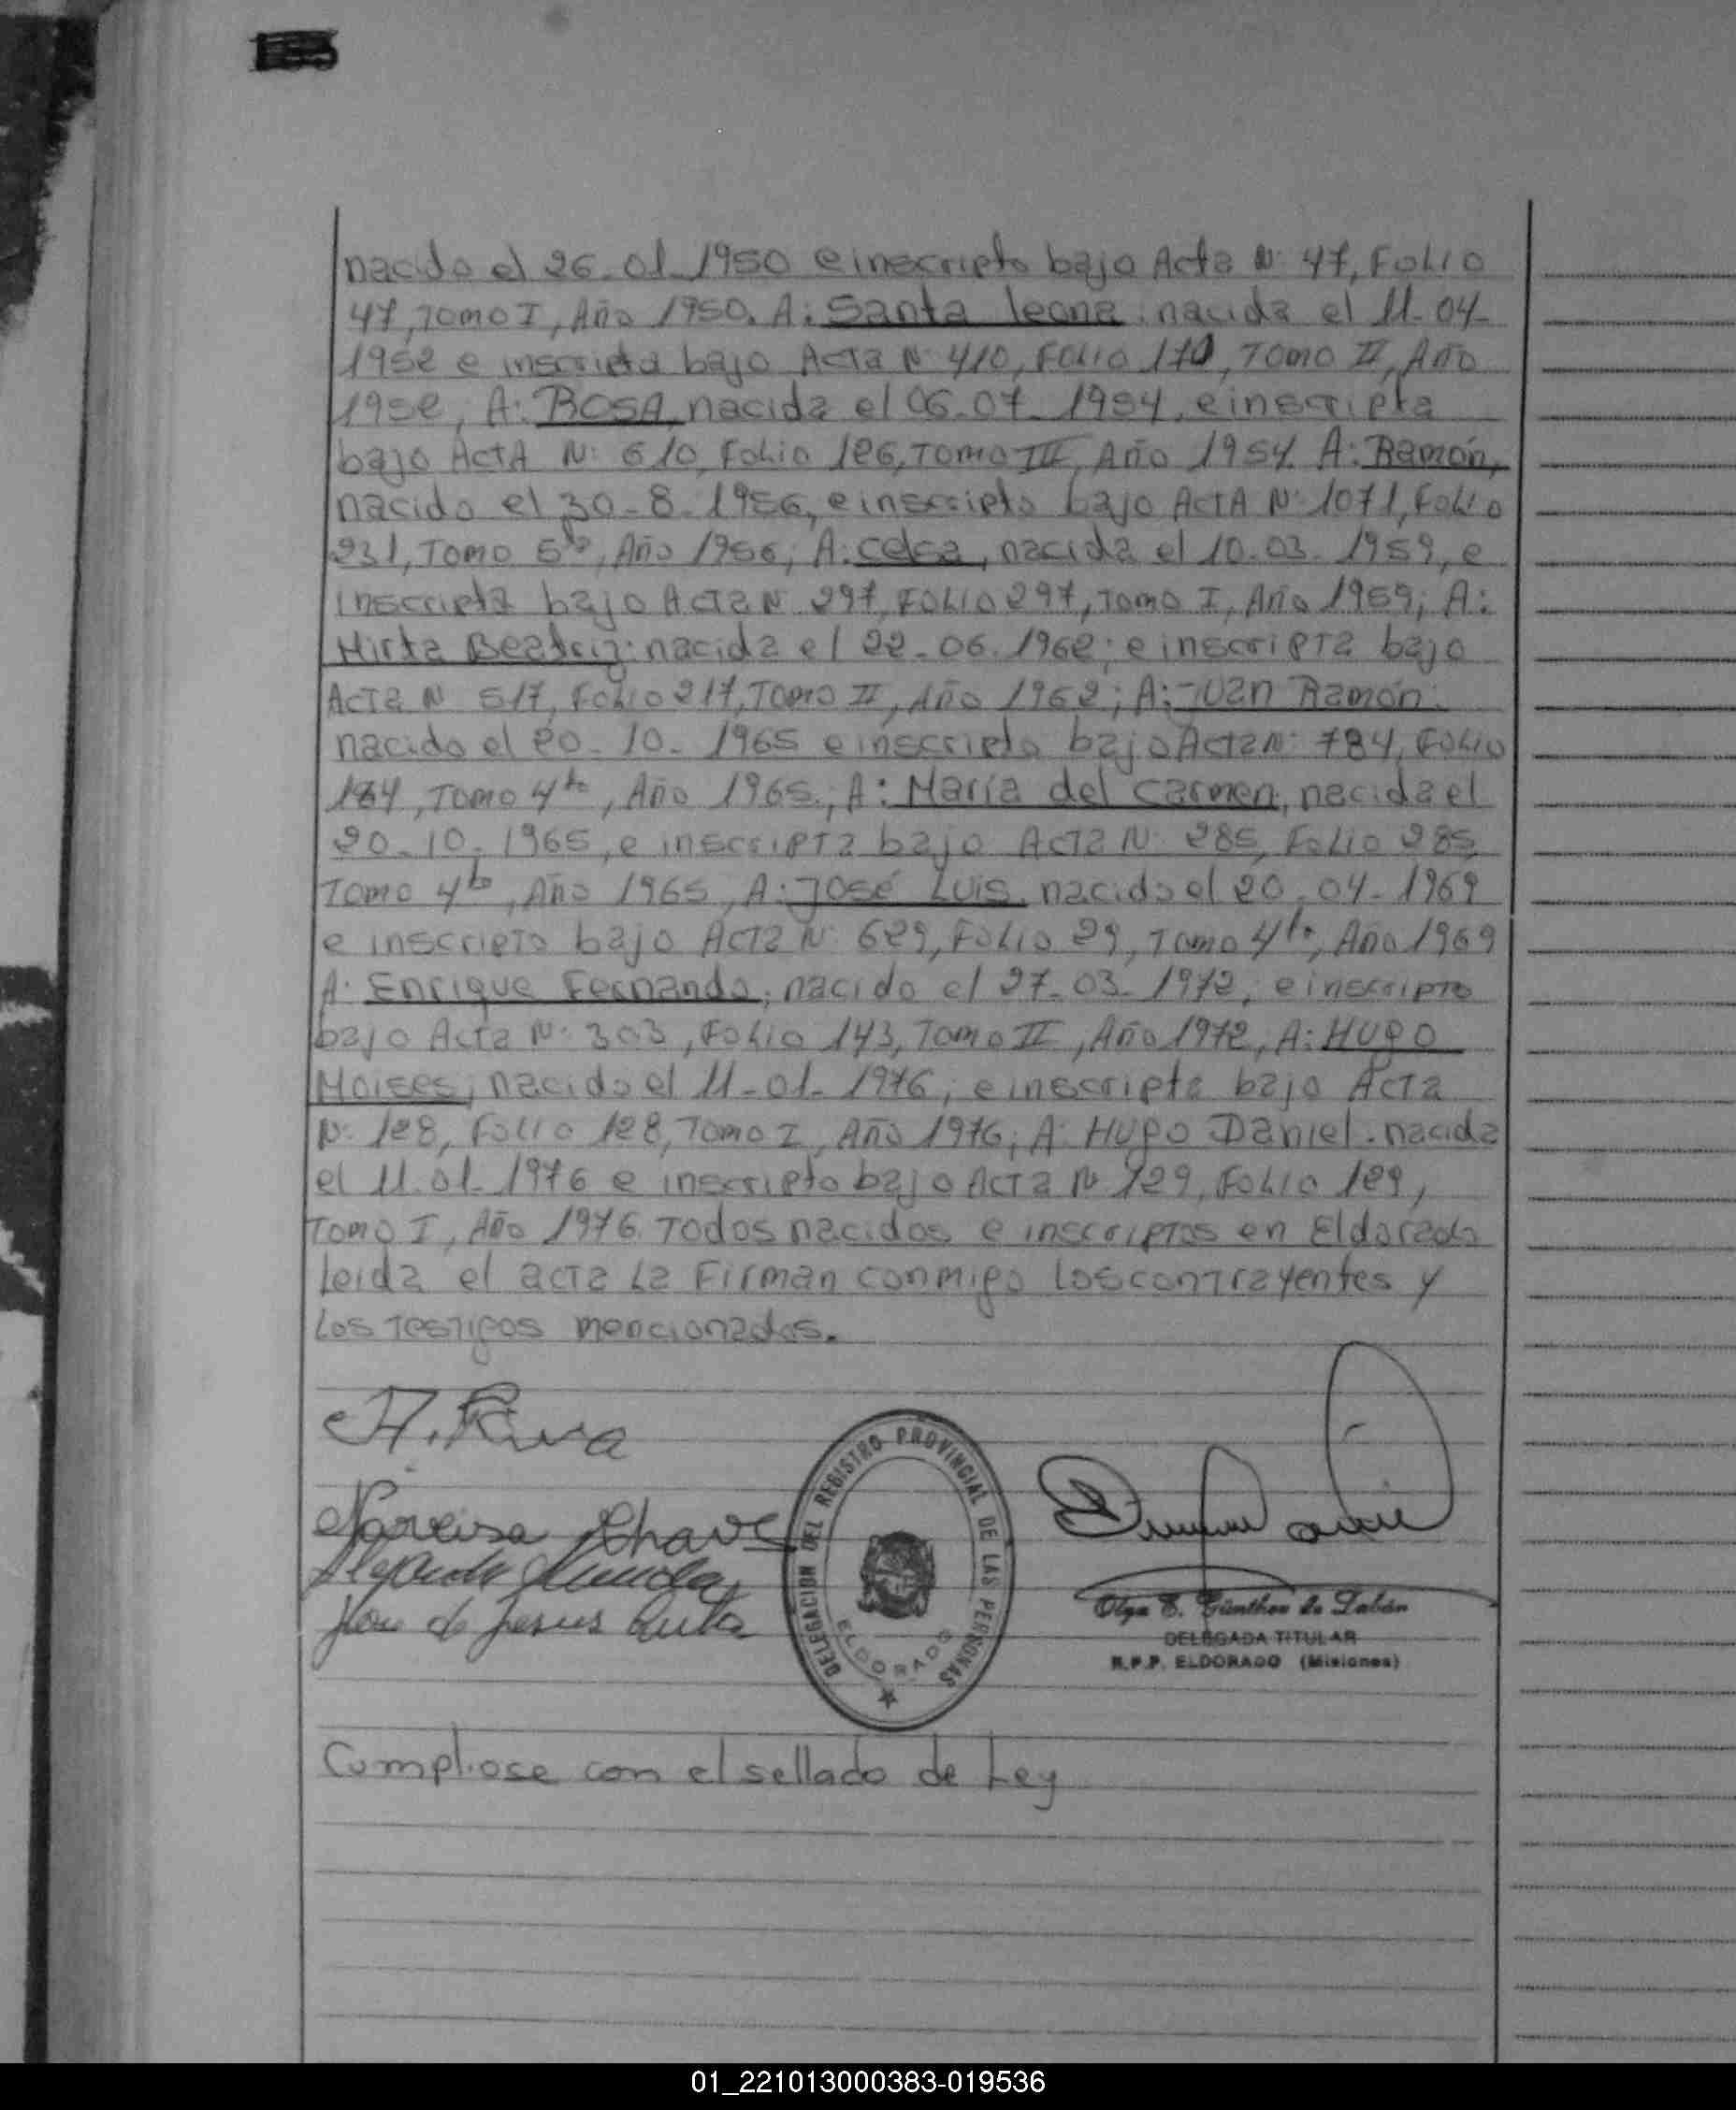 nacido el 26-01-1950 e inscripto bajo Acta N: 47, Folio
47, Tomo I, Año 1950. A: Santa leona: nacida el 11-04-
1952 e inscripta bajo Acta N: 410, Folio 170, Tomo II, Año
1952, A: ROSA, nacida el 06-07-1954, e inscripta
bajo ActA N: 610, Folio 126, Tomo III, Año 1954. A: Ramón,
nacido el 30-8-1956, e inscripto bajo ActA N: 1071, Folio
231, Tomo 5to, Año 1956; A: Celsa, nacida el 10-03-1959, e
inscripta bajo Acta N 297, Folio 297, Tomo I, Año 1959; A:
Mirta Beatriz: nacida el 22-06-1962; e inscripta bajo
Acta N 517, Folio 217, Tomo II, Año 1962; A: Juan Ramón:
nacido el 20-10-1965 e inscripto bajo Acta N: 784, Folio
184, Tomo 4to, Año 1965, A: María del Carmen, nacida el
20-10-1965, e inscripta bajo Acta N: 285, Folio 285,
Tomo 4to, Año 1965, A: José Luis, nacido el 20-04-1969
e inscripto bajo Acta N: 629, Folio 29, Tomo 4to, Año 1969
A: Enrique Fernando, nacido el 27-03-1972, e inscripto
bajo Acta N: 303, Folio 143, Tomo II, Año 1972, A: Hugo
Moises, nacido el 11-01-1976, e inscripta bajo Acta
N: 128, Folio 128, Tomo I, Año 1976; A: Hugo Daniel. nacida
el 11-01-1976 e inscripto bajo Acta N 129, Folio 129,
Tomo I, Año 1976. Todos nacidos e inscriptos en Eldorado
Leida el acta la Firman conmigo los contrayentes y
los testigos mencionados.
Narcisa Chaves
DELEGACION DEL REGISTRO PROVINCIAL DE LAS PERSONAS
ELDORADO
Olga E. Günther de Labán
DELEGADA TITULAR
R.P.P. ELDORADO (Misiones)
Cumpliose con el sellado de Ley
01_221013000383-019536